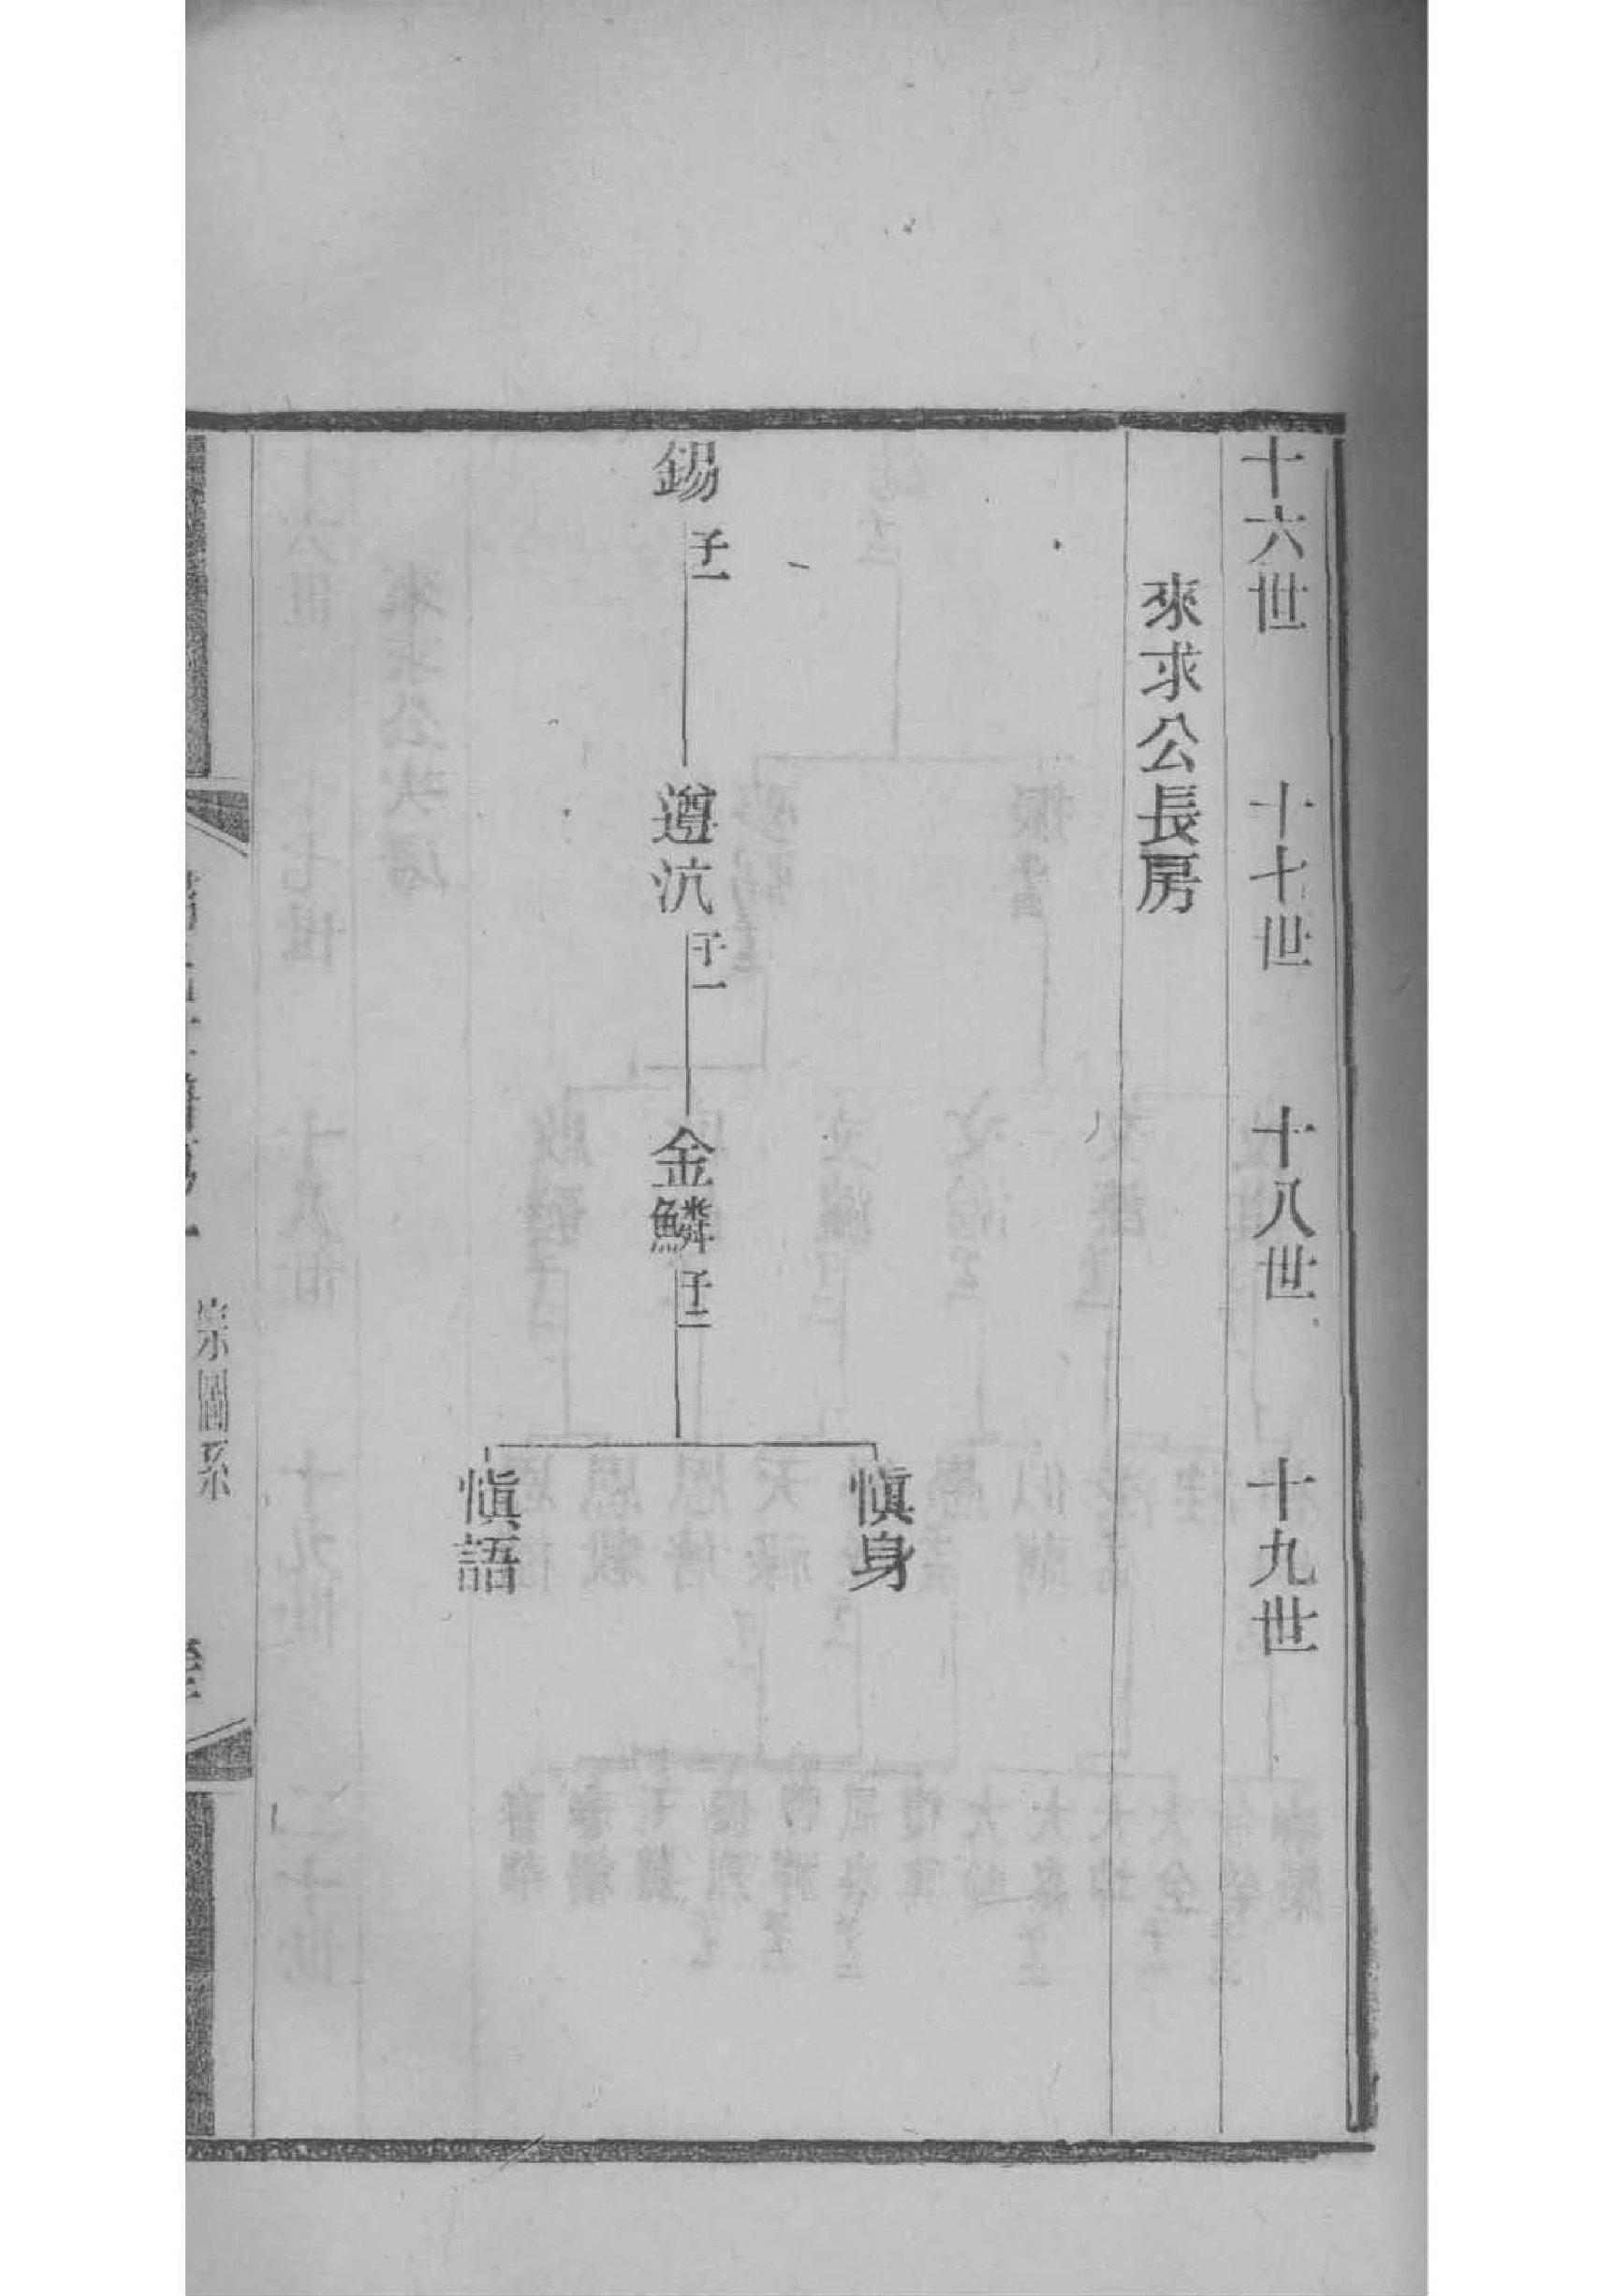 十六世
十七世
十八世
十九世
來求公長房
錫
子一
遵沆
子一
金鱗
子二
愼身
愼語
宗圖系